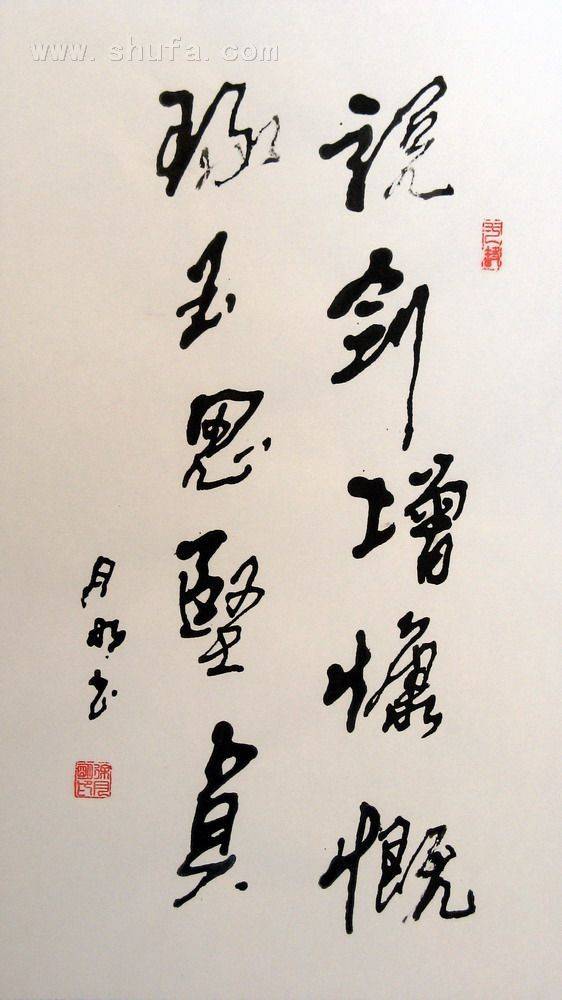 www.shufa.com
説劍增慷慨
琢玉思堅貞
月明書